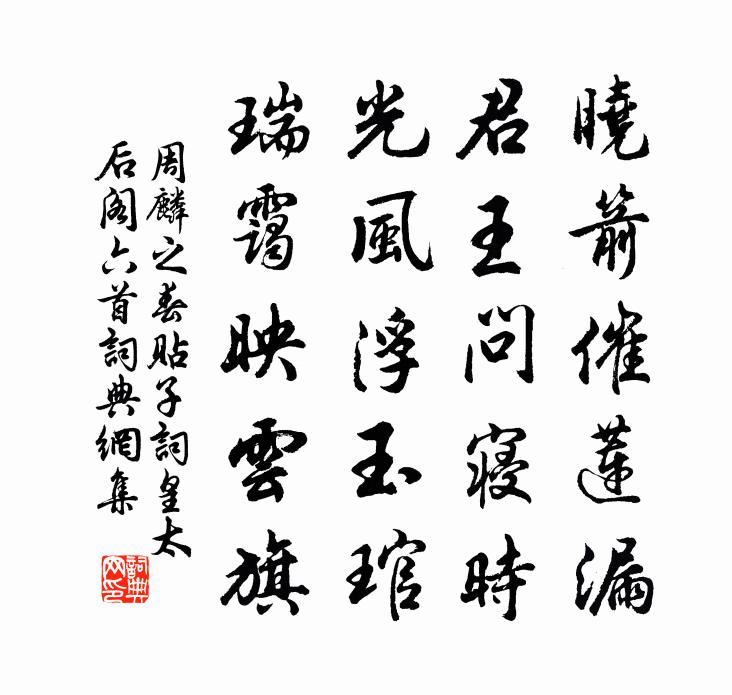 曉箭催蓮漏
君王問寢時
光風浮玉琯
瑞靄映雲旗
周麟之春貼子詞皇太
后閣六首詞典網集
詞典
网印